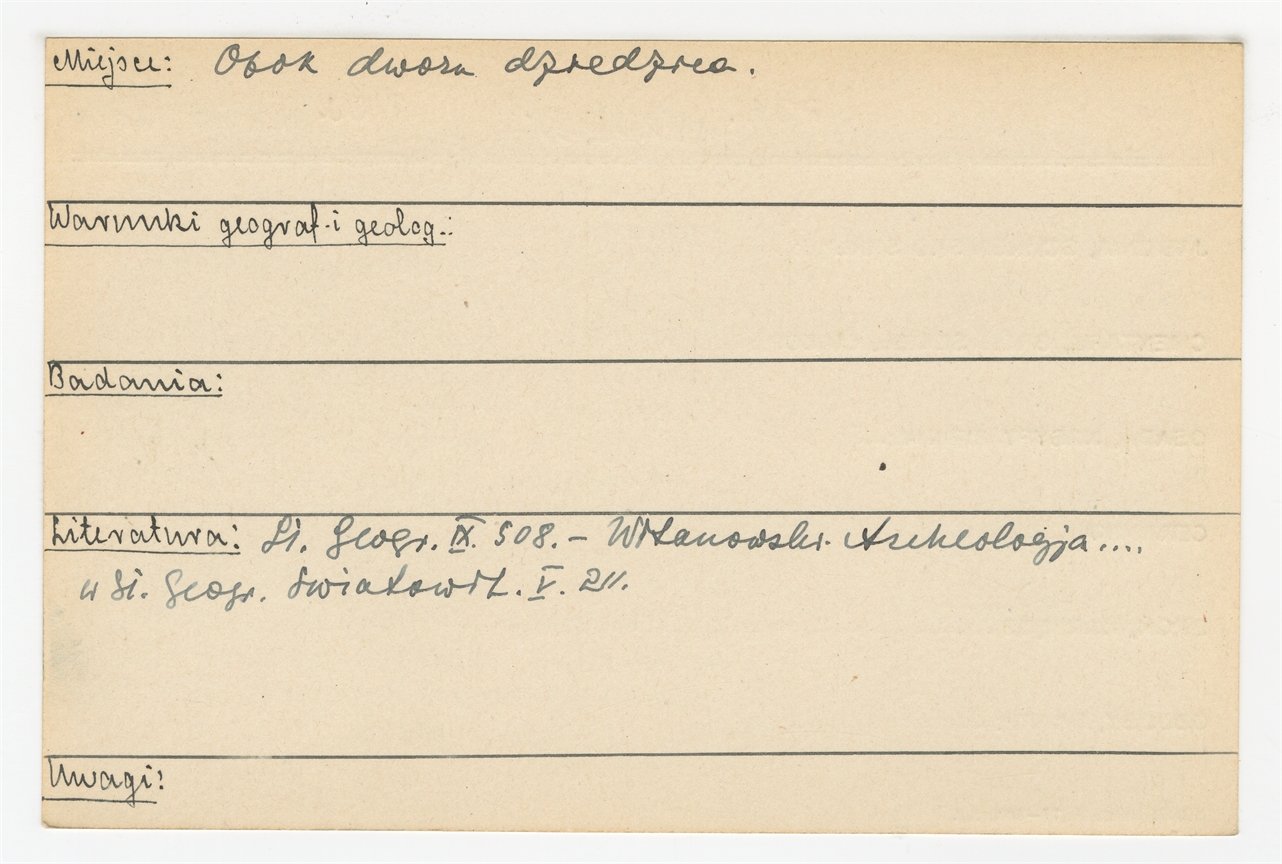 Miejsce: Obok dworu dziedzica.
Warunki geograf. i geolog.:
Badania:
Literatura: Sł. Geogr. IX. 508. – Witanowski. Archeologja....
w Sł. Geogr. Światowit. V. 211.
Uwagi: